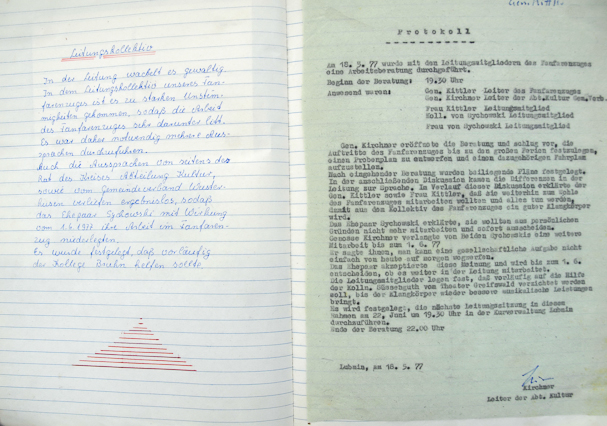 Leitungskollektiv
In der Leitung wackelt es gewaltig
In dem Leitungskollektiv unseres Fan-
farenzuges ist es zu starken Unstim-
migkeiten gekommen, sodaß die Arbeit
des Fanfarenzuges sehr darunter litt.
Es war daher notwendig mehrere Aus-
sprachen durchzuführen.
Auch die Aussprachen von seiten des
Rat des Kreises Abteilung Kultur,
sowie vom Gemeindeverband
verliefen ergebnislos, sodaß
das Ehepaar Rychowski mit Wirkung
vom 1.6.1977 ihre Arbeit im Fanfaren-
zug niederlegten.
Es wurde festgelegt, daß vorläufig
der Kollege helfen sollte
Protokoll
Am 18. 5. 77 wurde mit den Leitungsmitgliedern des Fanfarenzuges
eine Arbeitsberatung durchgeführt.
Beginn der Beratung: 19.30 Uhr
Anwesend waren: Gen. Kittler Leiter des Fanfarenzuges
Gen. Kirchner Leiter der Abt. Kultur
Frau Kittler Leitungsmitglied
Koll. von Rychowski Leitungsmitglied
Frau von Rychowski Leitungsmitglied
Gen. Kirchner eröffnete die Beratung und schlug vor, die
Auftritte des Fanfarenzuges bis zu den großen Ferien festzulegen,
einen Probenplan zu entwerfen und einen dazugehörigen Fahrplan
aufzustellen.
Nach eingehender Beratung wurden beiliegende Pläne festgelegt.
In der anschließenden Diskussion kamen die Differenzen in der
Leitung zur Sprache. Im Verlauf dieser Diskussion erklärte der
Gen. Kittler sowie Frau Kittler, daß sie weiterhin zum Wohle
des Fanfarenzuges mitarbeiten wollten und alles tun werden,
damit aus dem Kollektiv des Fanfarenzuges ein guter Klangkörper
wird.
Das Ehepaar Rychowski erklärte, sie wollten aus persönlichen
Gründen nicht mehr mitarbeiten und sofort ausscheiden.
Genosse Kirchner verlangte von Beiden Rychowskis eine weitere
Mitarbeit bis zum 1. 6. 77
Er sagte ihnen, man kann eine gesellschaftliche Aufgabe nicht
einfach von heute auf morgen wegwerfen.
Das Ehepaar akzeptierte diese Meinung und wird bis zum 1. 6.
entscheiden, ob es weiter in der Leitung mitarbeitet.
Die Leitungsmitglieder legen fest, daß vorläufig auf die Hilfe
der Kolln. Süssengut vom Theater Greifswald verzichtet werden
soll, bis der Klangkörper wieder bessere musikalische Leistungen
bringt.
Es wird festgelegt, die nächste Leitungssitzung in diesem
Rahmen am 22. Juni um 19.30 Uhr in der Kurverwaltung Lubmin
durchzuführen.
Ende der Beratung 22.00 Uhr
Lubmin, am 18. 5. 77
Kirchner
Leiter der Abt. Kultur